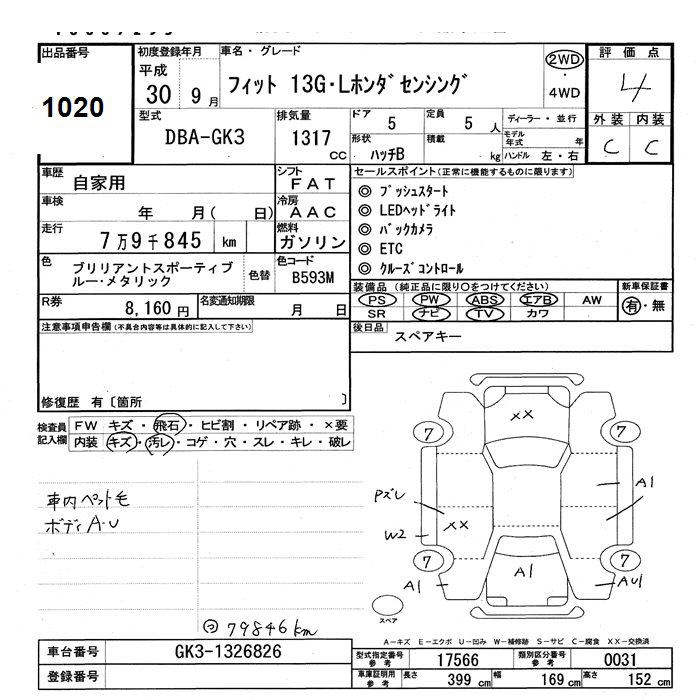 出品番号
1020
初度登録年月
平成
30 9月
車名・グレード
フィット 13G・Lホンダセンシング
2WD
・
4WD
評価点
4
外装 内装
C C
型式
DBA-GK3
排気量
1317
CC
ドア
5
定員
5 人
形状
ハッチB
積載
kg
ディーラー・並行
モデル年式 年
ハンドル 左・右
車歴
自家用
シフト
FAT
車検
年 月( 日)
冷房
AAC
走行
7万9千845 km
燃料
ガソリン
色
ブリリアントスポーティブ
ルー・メタリック
色替
色コード
B593M
R券
8,160円
名変通知期限
月 日
セールスポイント(正常に機能するものに限ります)
◎ プッシュスタート
◎ LEDヘッドライト
◎ バックカメラ
◎ ETC
◎ クルーズコントロール
装備品(純正品に限り○をつけてください)
PS PW ABS エアB AW
SR ナビ TV カワ
新車保証書
有・無
後日品
スペアキー
注意事項申告欄(不具合内容等は具体的に記入して下さい)
修復歴 有〔箇所 〕
検査員
記入欄
FW キズ・飛石・ヒビ割・リペア跡・×要
内装 キズ・汚レ・コゲ・穴・スレ・キレ・破レ
車内ペット毛
ボディA・U
79846km
XX
7
7
A1
Pズレ
XX
W2
7
7
A1
A1
AU1
スペア
A-キズ E-エクボ U-凹み W-補修跡 S-サビ C-腐食 XX-交換済
車台番号
GK3-1326826
登録番号
型式指定番号
参考
17566
類別区分番号
参考
0031
車庫証明用
参考
長さ
399 cm
幅
169 cm
高さ
152 cm